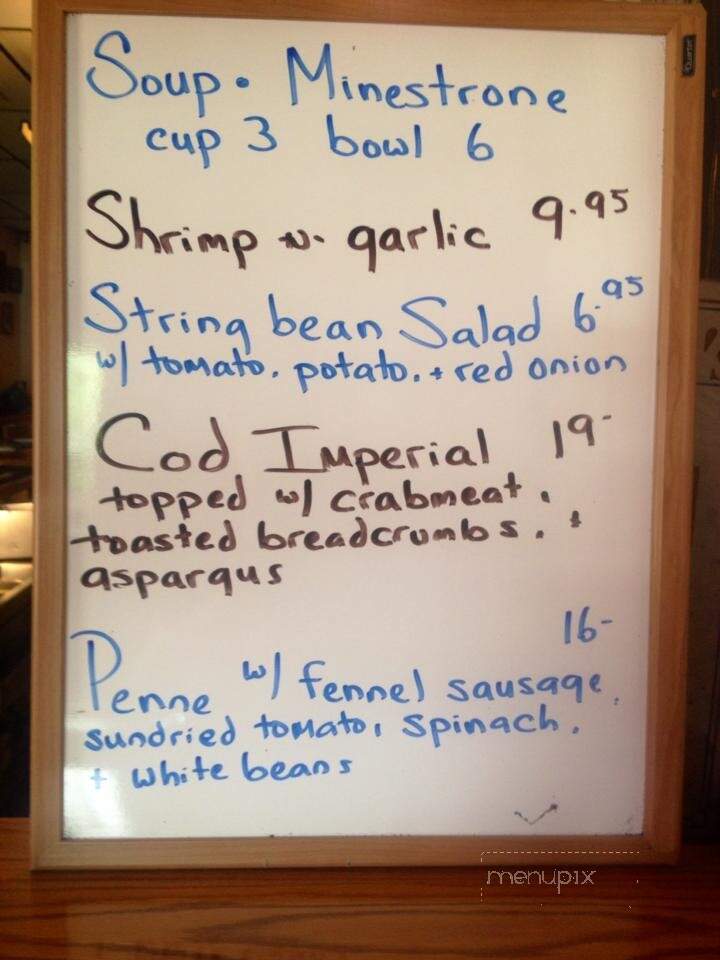 Soup. Minestrone
cup 3 bowl 6
Shrimp n. garlic 9.95
String bean Salad 6.95
w/ tomato, potato, + red onion
Cod Imperial 19-
topped w/ crabmeat,
toasted breadcrumbs, +
aspargus
16-
Penne w/ fennel sausage,
sundried tomato, spinach,
+ white beans
Quartet
menupix